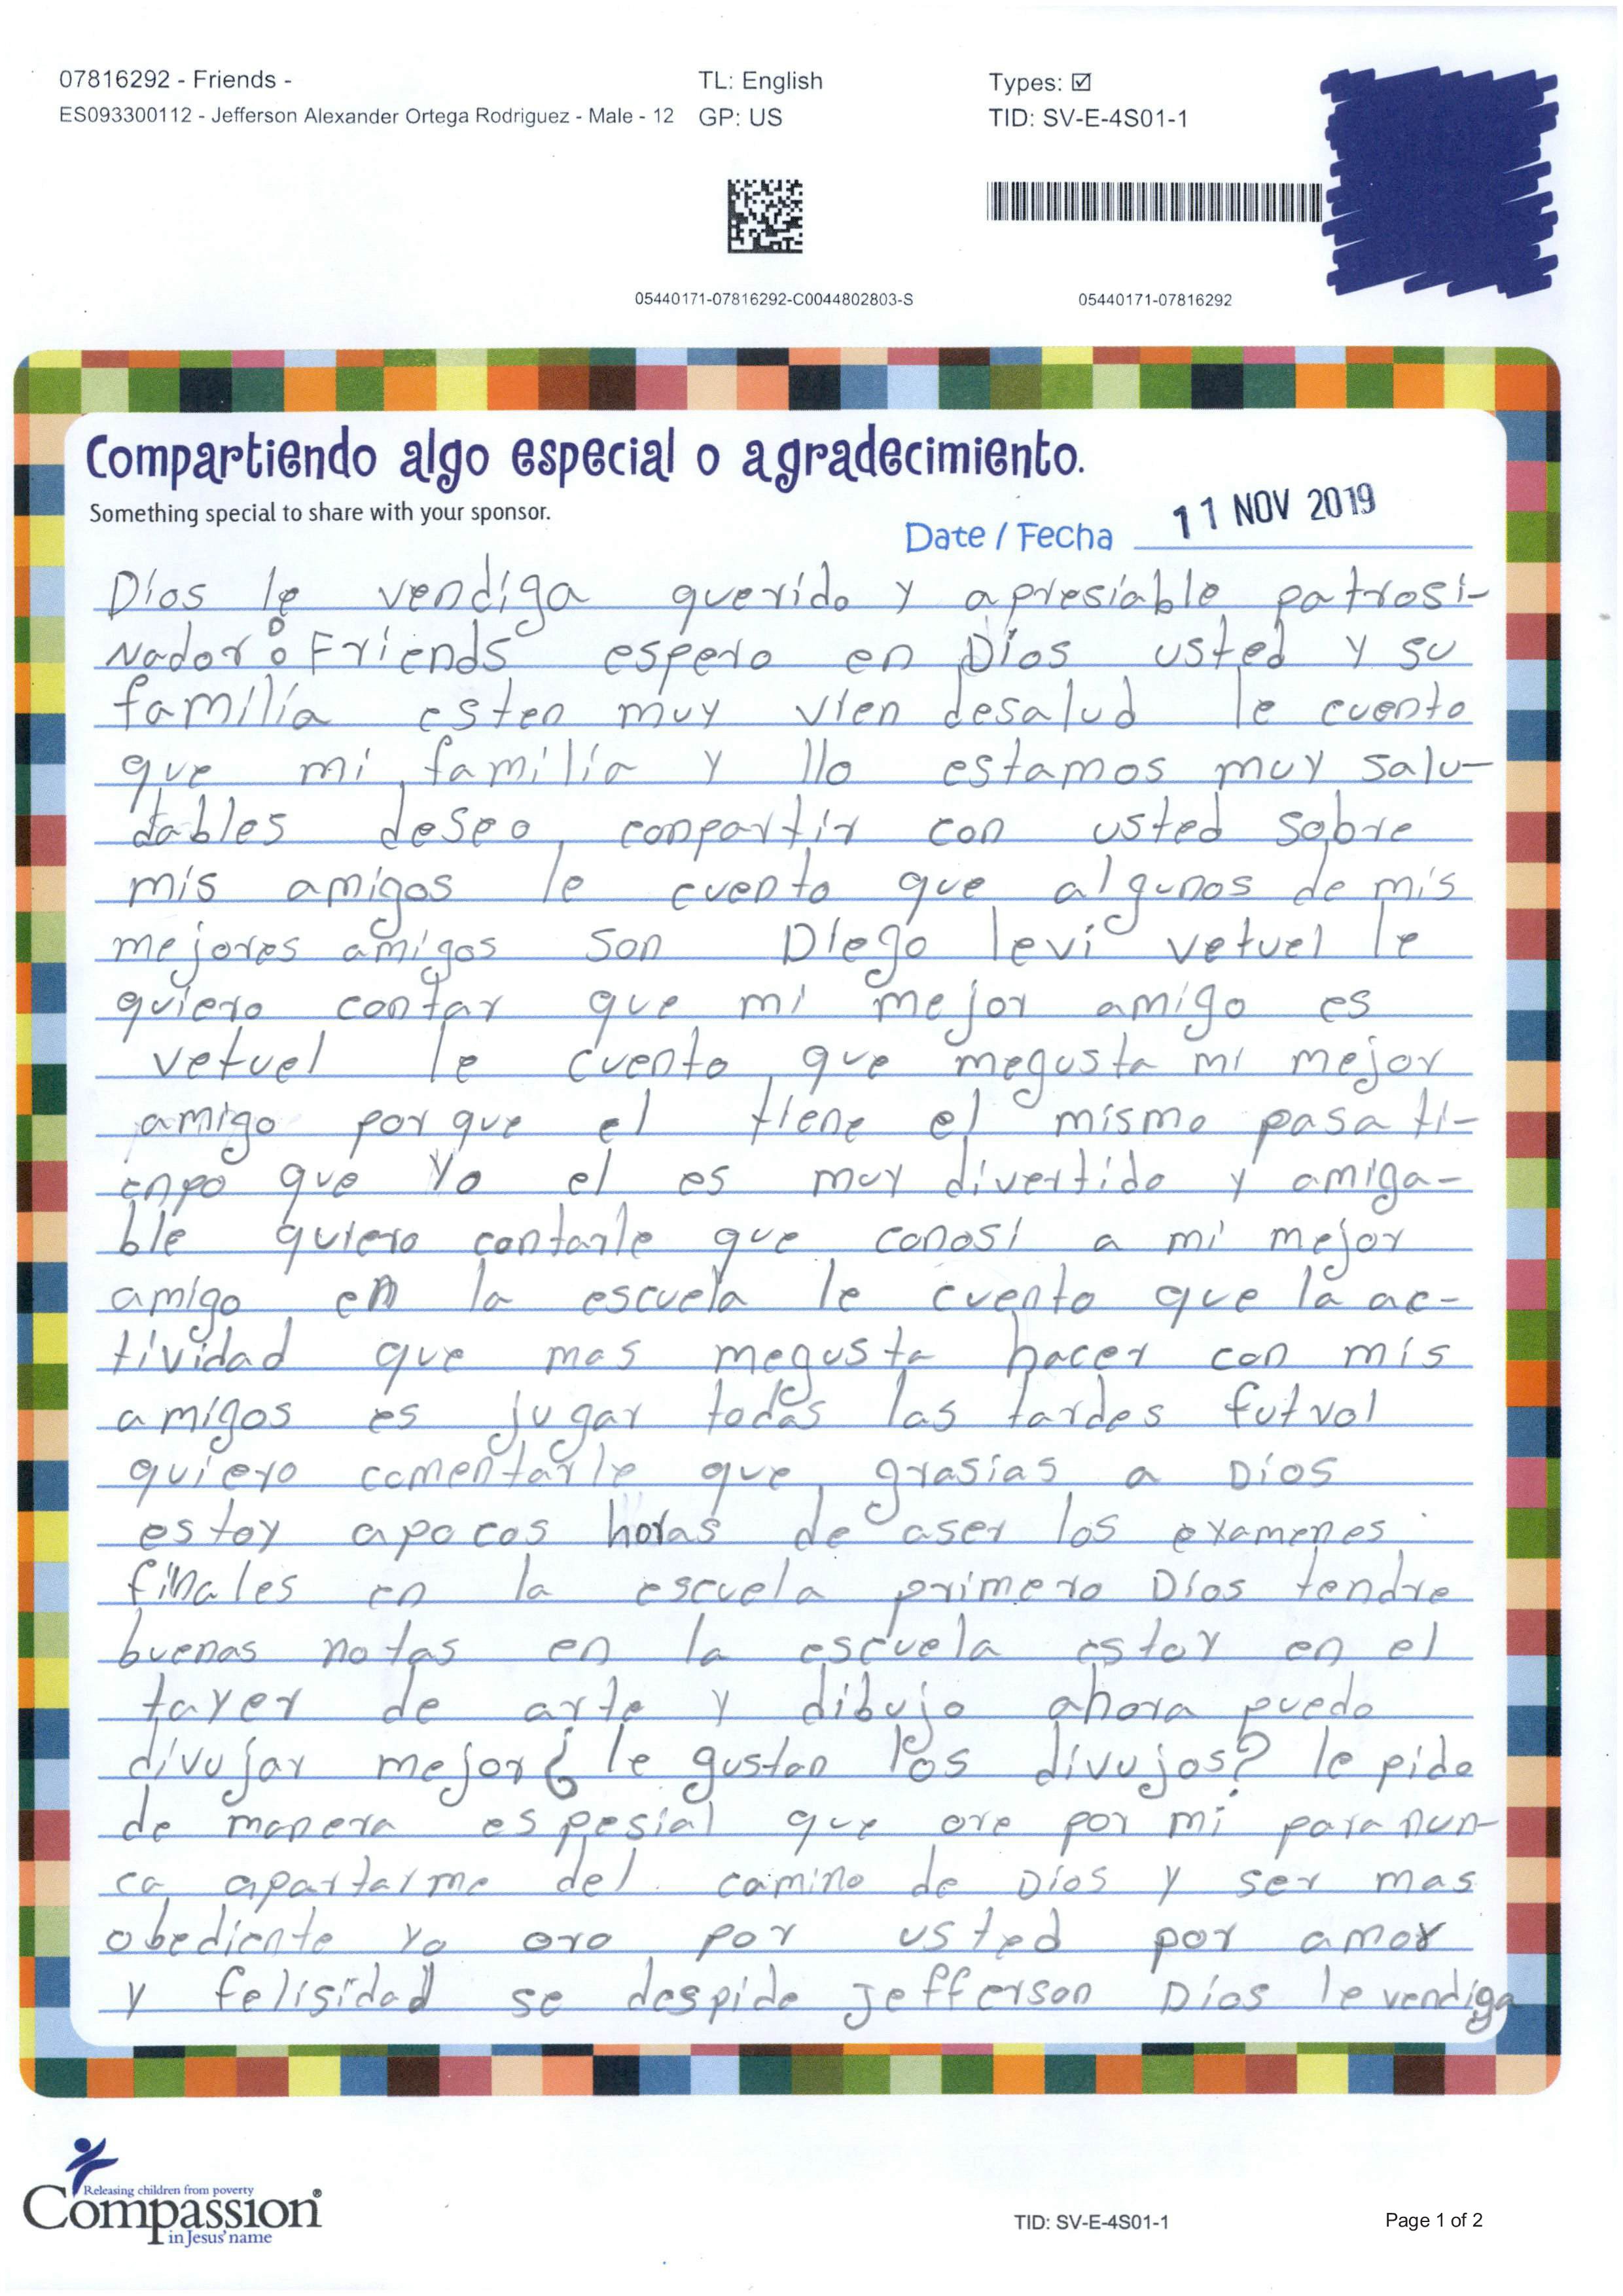 07816292 - Friends -
ES093300112 - Jefferson Alexander Ortega Rodriguez - Male - 12
TL: English
GP: US
Types: ☑
TID: SV-E-4S01-1
05440171-07816292-C0044802803-S
05440171-07816292
Compartiendo algo especial o agradecimiento.
Something special to share with your sponsor.
Date / Fecha 11 NOV 2019
Dios le vendiga querido y apresiable patrosi-
Nador: Friends espero en Dios usted y su
familia esten muy vien desalud le cuento
que mi familia y llo estamos muy salu-
dables deseo conpartir con usted sobre
mis amigos le cuento que algunos de mis
mejores amigos son Diego levi vetuel le
quiero contar que mi mejor amigo es
vetuel le cuento que megusta mi mejor
amigo por que el tiene el mismo pasa ti-
enpo que Yo el es muy divertido y amiga-
ble quiero contarle que conosi a mi mejor
amigo en la escuela le cuento que la ac-
tividad que mas megusta hacer con mis
amigos es jugar todas las tardes futvol
quiero comentarle que grasias a Dios
estoy apocos horas de aser los examenes
finales en la escuela primero Dios tendre
buenas notas en la escuela estoy en el
tayer de arte y dibujo ahora puedo
divujar mejor ¿le gustan los divujos? le pido
de manera espesial que ore por mi para nun-
ca apartarme del camino de Dios y ser mas
obediente yo oro por usted por amor
y felisidad se despide Jefferson Dios le vendiga
Releasing children from poverty
Compassion®
in Jesus' name
TID: SV-E-4S01-1
Page 1 of 2